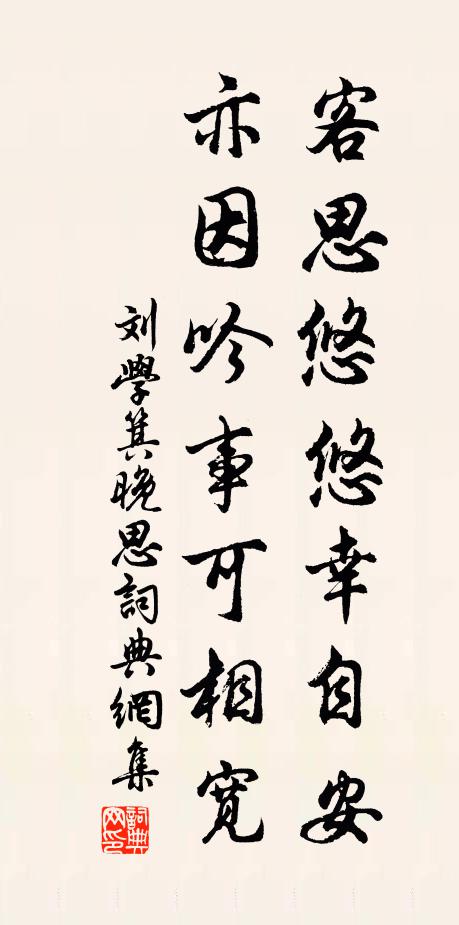 客思悠悠幸自安
亦因吟事可相寬
刘學箕晚思詞典網集
詞典网印